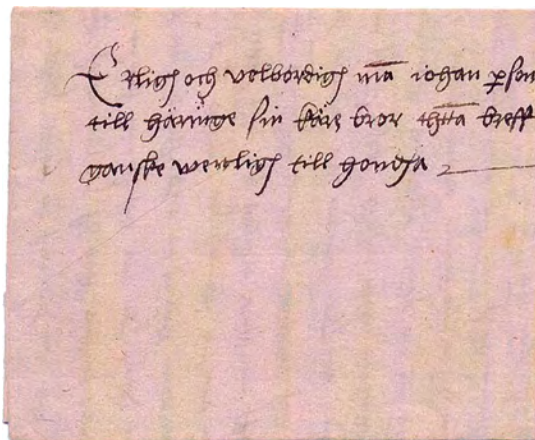 Erligh och velbördigh mā iohan pson
till häringe sin käre bror thtta breff
ganske wenligh till hondha